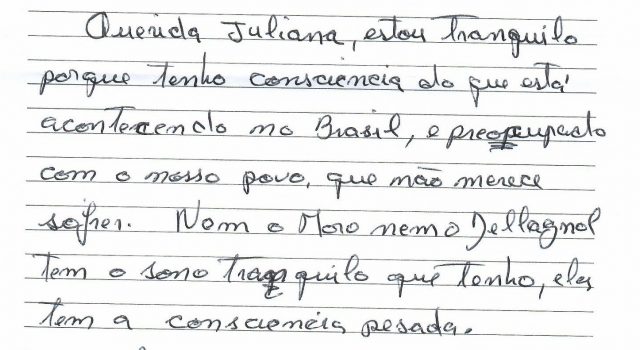 Querida Juliana, estou tranquilo
porque tenho consciência do que está
acontecendo no Brasil, e preocupado
com o nosso povo, que não merece
sofrer. Nem o Moro nem o Dellagnol
tem o sono tranquilo que tenho, eles
tem a consciencia pesada.